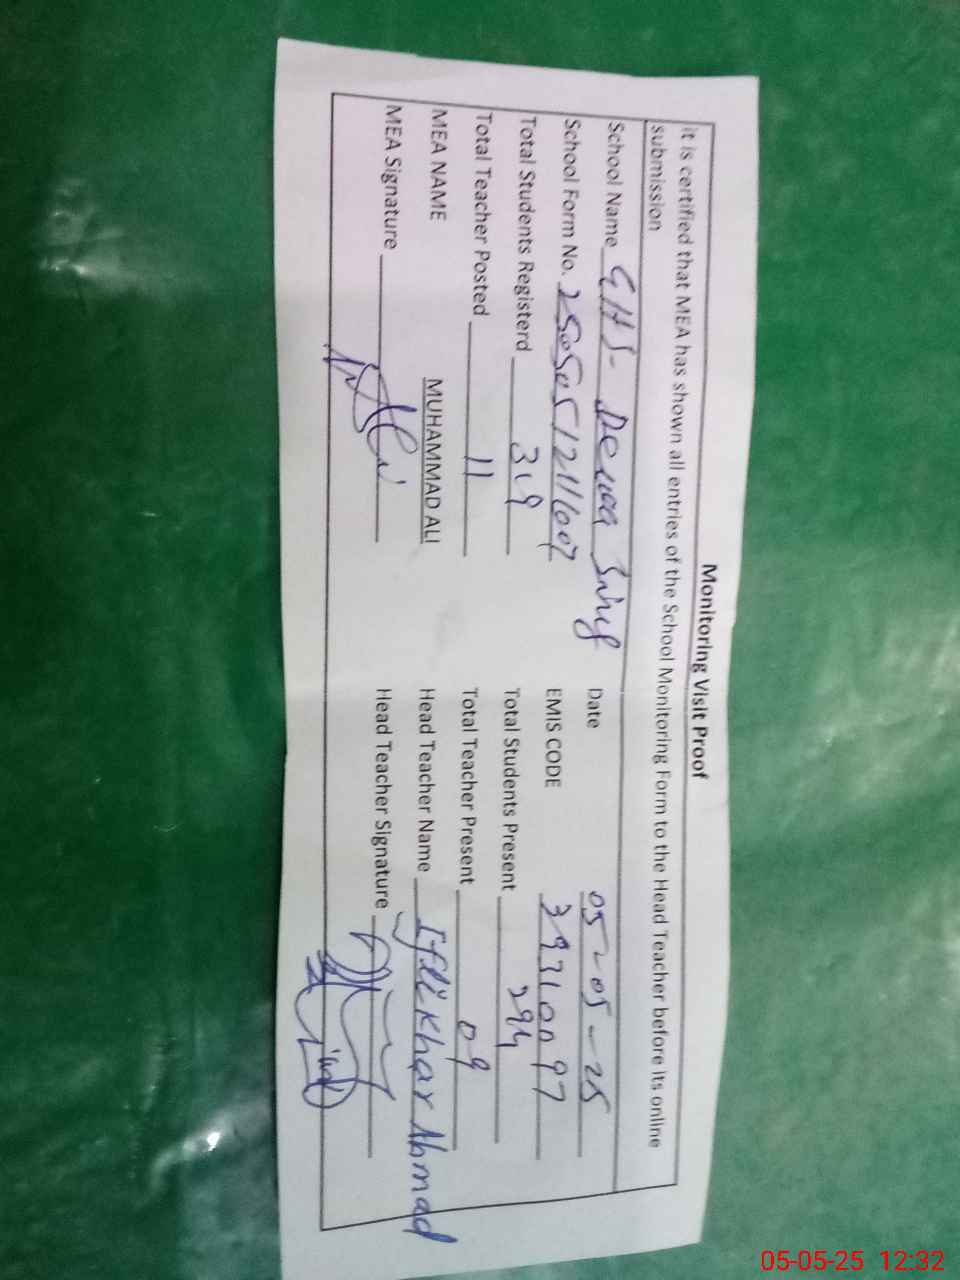 Monitoring Visit Proof
it is certified that MEA has shown all entries of the School Monitoring Form to the Head Teacher before its online
submission
School Name GHS- Dewa Date 05-05-25
School Form No. EMIS CODE 39310097
Total Students Registerd 319 Total Students Present 294
Total Teacher Posted 11 Total Teacher Present 09
MEA NAME MUHAMMAD ALI Head Teacher Name Iftikhar Ahmad
MEA Signature Head Teacher Signature
05-05-25 12:32